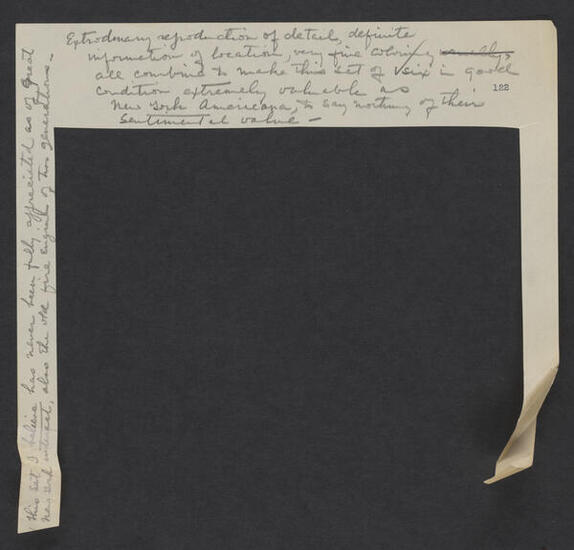 Extrodinary reproduction of detail, definite
information of location, very fine coloring usually,
all combine to make this set of six in good
condition extremely valuable as
122
New York Americana, to say nothing of their
sentimental value —
This set I believe has never been fully appreciated as of great
New York interest, also the old fire engines of two generations —